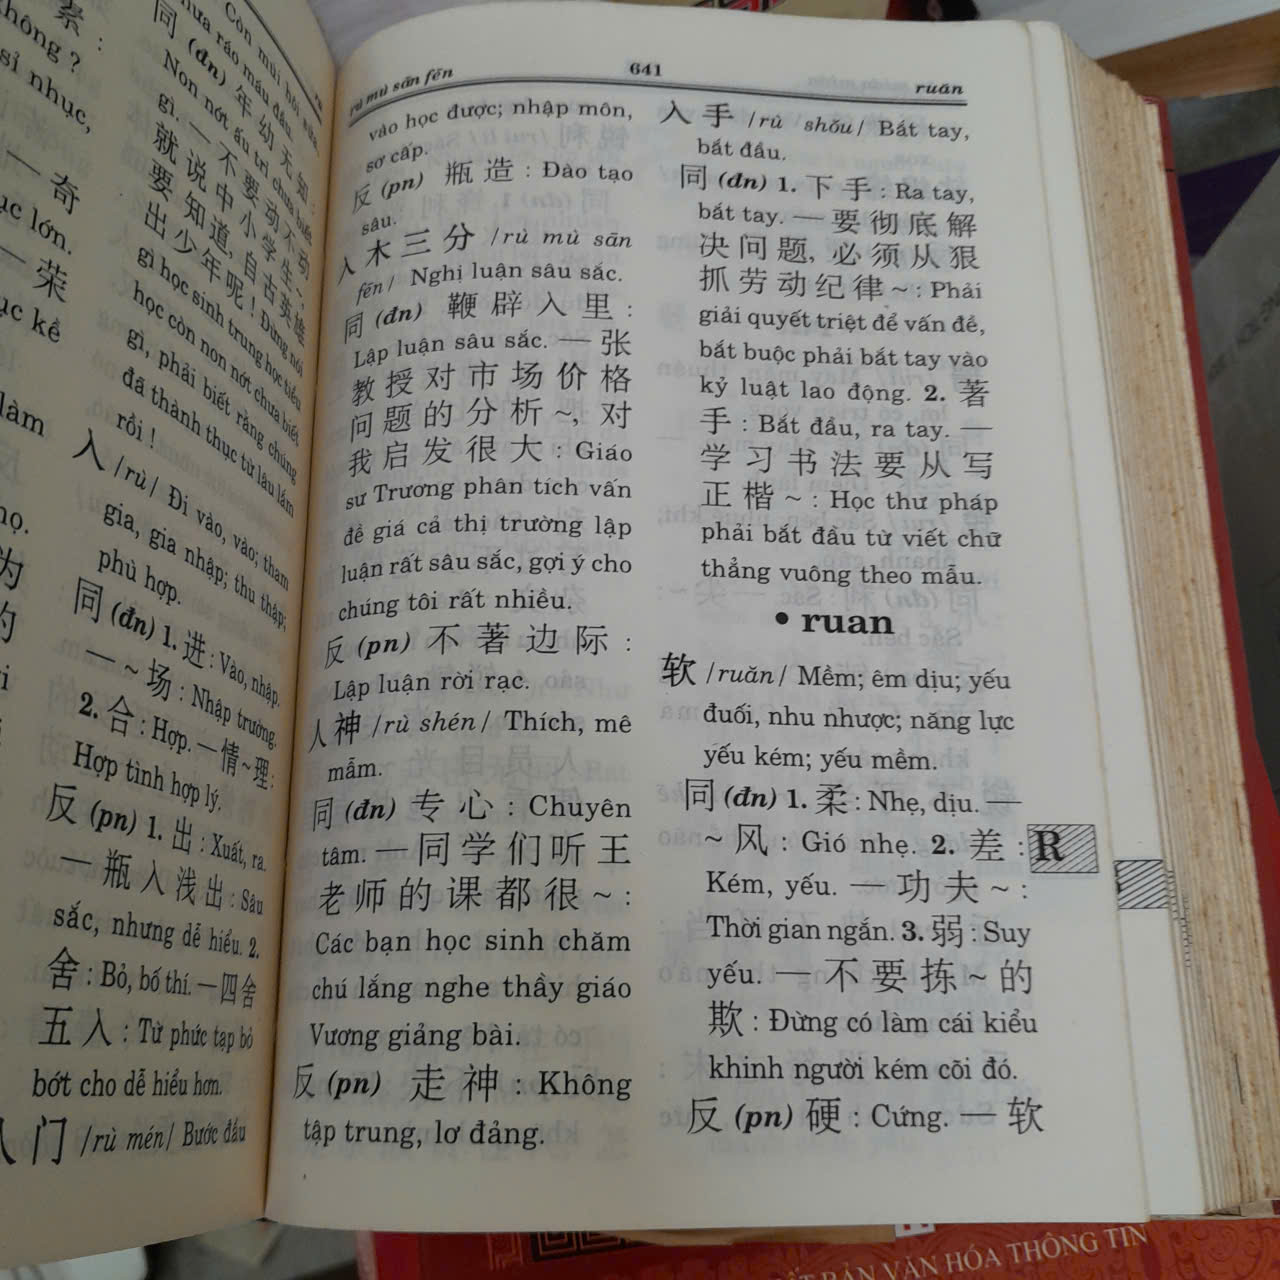 素 :
không ?
sỉ nhục,
— 奇
lớn.
— 荣
kể
làm
họ.
为
的
Còn mùi hôi sữa,
chưa ráo máu đầu.
同 (đn) 年 幼 无 知 :
Non nớt ấu trĩ chưa biết
gì. — 不 要 动 不 动
就 说 中 小 学 生 ~,
要 知 道, 自 古 英 雄
出 少 年 呢 ! Đừng nói
gì học sinh trung học tiểu
học còn non nớt chưa biết
gì, phải biết rằng chúng
đã thành thục từ lâu lắm
rồi !
入 /rù/ Đi vào, vào; tham
gia, gia nhập; thu thập;
phù hợp.
同 (đn) 1. 进 : Vào, nhập.
— ~ 场 : Nhập trường.
2. 合 : Hợp. — 情 ~ 理 :
Hợp tình hợp lý.
反 (pn) 1. 出 : Xuất, ra.
— 瓶 入 浅 出 : Sâu
sắc, nhưng dễ hiểu. 2.
舍 : Bỏ, bố thí. — 四 舍
五 入 : Từ phức tạp bỏ
bớt cho dễ hiểu hơn.
入 门 /rù mén/ Bước đầu
rù mù sān fēn 641 ruǎn
vào học được; nhập môn,
sơ cấp.
反 (pn) 瓶 造 : Đào tạo
sâu.
入 木 三 分 /rù mù sān
fēn/ Nghị luận sâu sắc.
同 (đn) 鞭 辟 入 里 :
Lập luận sâu sắc. — 张
教 授 对 市 场 价 格
问 题 的 分 析 ~, 对
我 启 发 很 大 : Giáo
sư Trương phân tích vấn
đề giá cả thị trường lập
luận rất sâu sắc, gợi ý cho
chúng tôi rất nhiều.
反 (pn) 不 著 边 际 :
Lập luận rời rạc.
入 神 /rù shén/ Thích, mê
mẩm.
同 (đn) 专 心 : Chuyên
tâm. — 同 学 们 听 王
老 师 的 课 都 很 ~ :
Các bạn học sinh chăm
chú lắng nghe thầy giáo
Vương giảng bài.
反 (pn) 走 神 : Không
tập trung, lơ đảng.
入 手 /rù shǒu/ Bắt tay,
bắt đầu.
同 (đn) 1. 下 手 : Ra tay,
bắt tay. — 要 彻 底 解
决 问 题, 必 须 从 狠
抓 劳 动 纪 律 ~ : Phải
giải quyết triệt để vấn đề,
bắt buộc phải bắt tay vào
kỷ luật lao động. 2. 著
手 : Bắt đầu, ra tay. —
学 习 书 法 要 从 写
正 楷 ~ : Học thư pháp
phải bắt đầu từ viết chữ
thẳng vuông theo mẫu.
• ruan
软 /ruǎn/ Mềm; êm dịu; yếu
đuối, nhu nhược; năng lực
yếu kém; yếu mềm.
同 (đn) 1. 柔 : Nhẹ, dịu. —
~ 风 : Gió nhẹ. 2. 差 :
Kém, yếu. — 功 夫 ~ :
Thời gian ngắn. 3. 弱 : Suy
yếu. — 不 要 拣 ~ 的
欺 : Đừng có làm cái kiểu
khinh người kém cõi đó.
反 (pn) 硬 : Cứng. — 软
R
BẢN VĂN HÓA THÔNG TIN